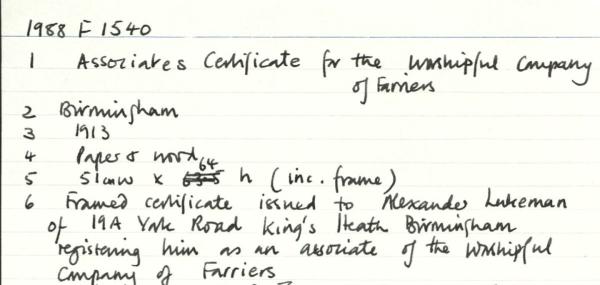 1988 F 1540
1 Associates Certificate for the Worshipful Company
of Farriers
2 Birmingham
3 1913
4 Paper & wood
5 51cmw x 64 h (inc. frame)
6 Framed certificate issued to Alexander Lukeman
of 19A Vale Road King's Heath Birmingham
registering him as an associate of the Worshipful
Company of Farriers